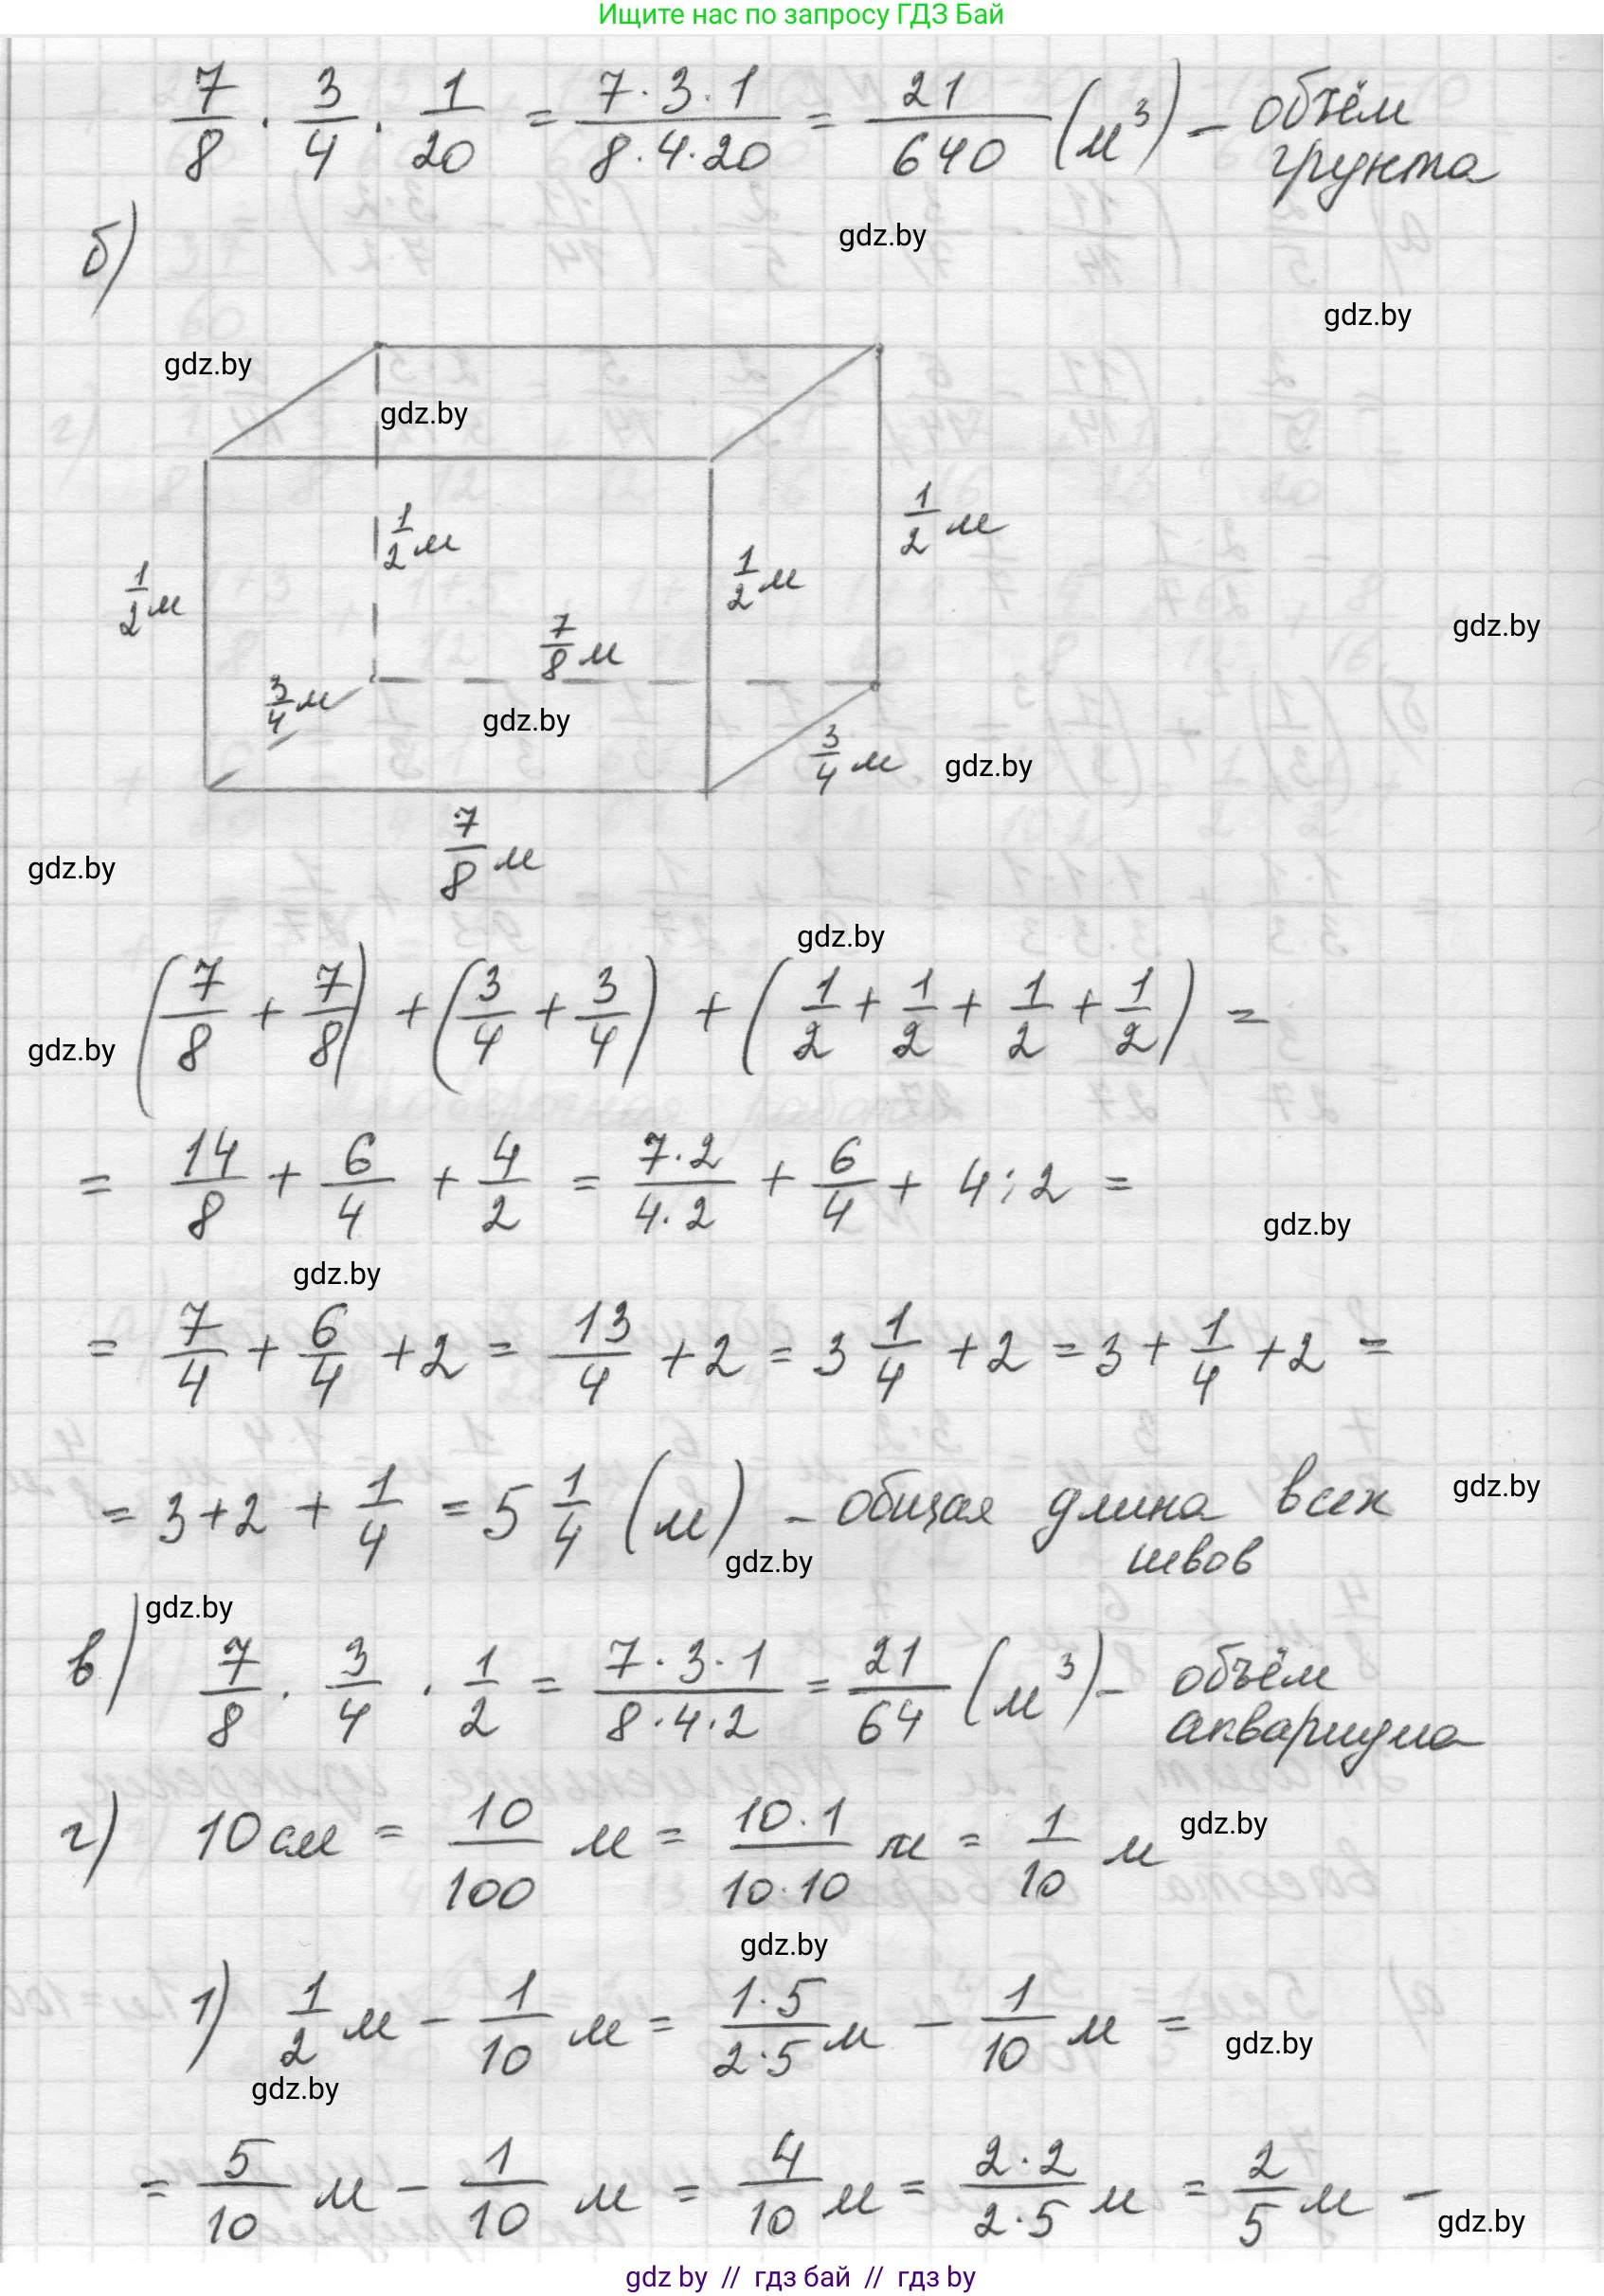 Ищите нас по запросу ГДЗ Бай
7/8 · 3/4 · 1/20 = 7·3·1/8·4·20 = 21/640 (м³) – объём
грунта
gdz.by
б)
gdz.by
gdz.by
gdz.by
1/2 м
1/2 м
1/2 м
1/2 м
7/8 м
gdz.by
3/4 м
gdz.by
3/4 м
gdz.by
7/8 м
gdz.by
gdz.by
(7/8 + 7/8) + (3/4 + 3/4) + (1/2 + 1/2 + 1/2 + 1/2) =
gdz.by
= 14/8 + 6/4 + 4/2 = 7·2/4·2 + 6/4 + 4:2 =
gdz.by
gdz.by
= 7/4 + 6/4 + 2 = 13/4 + 2 = 3 1/4 + 2 = 3 + 1/4 + 2 =
= 3 + 2 + 1/4 = 5 1/4 (м) – общая длина всех
швов
gdz.by
gdz.by
gdz.by
в) 7/8 · 3/4 · 1/2 = 7·3·1/8·4·2 = 21/64 (м³) – объём
аквариума
г) 10 см = 10/100 м = 10·1/10·10 м = 1/10 м
gdz.by
gdz.by
1) 1/2 м – 1/10 м = 1·5/2·5 м – 1/10 м =
gdz.by
gdz.by
= 5/10 м – 1/10 м = 4/10 м = 2·2/2·5 м = 2/5 м –
gdz.by
gdz by // гдз бай // гдз by